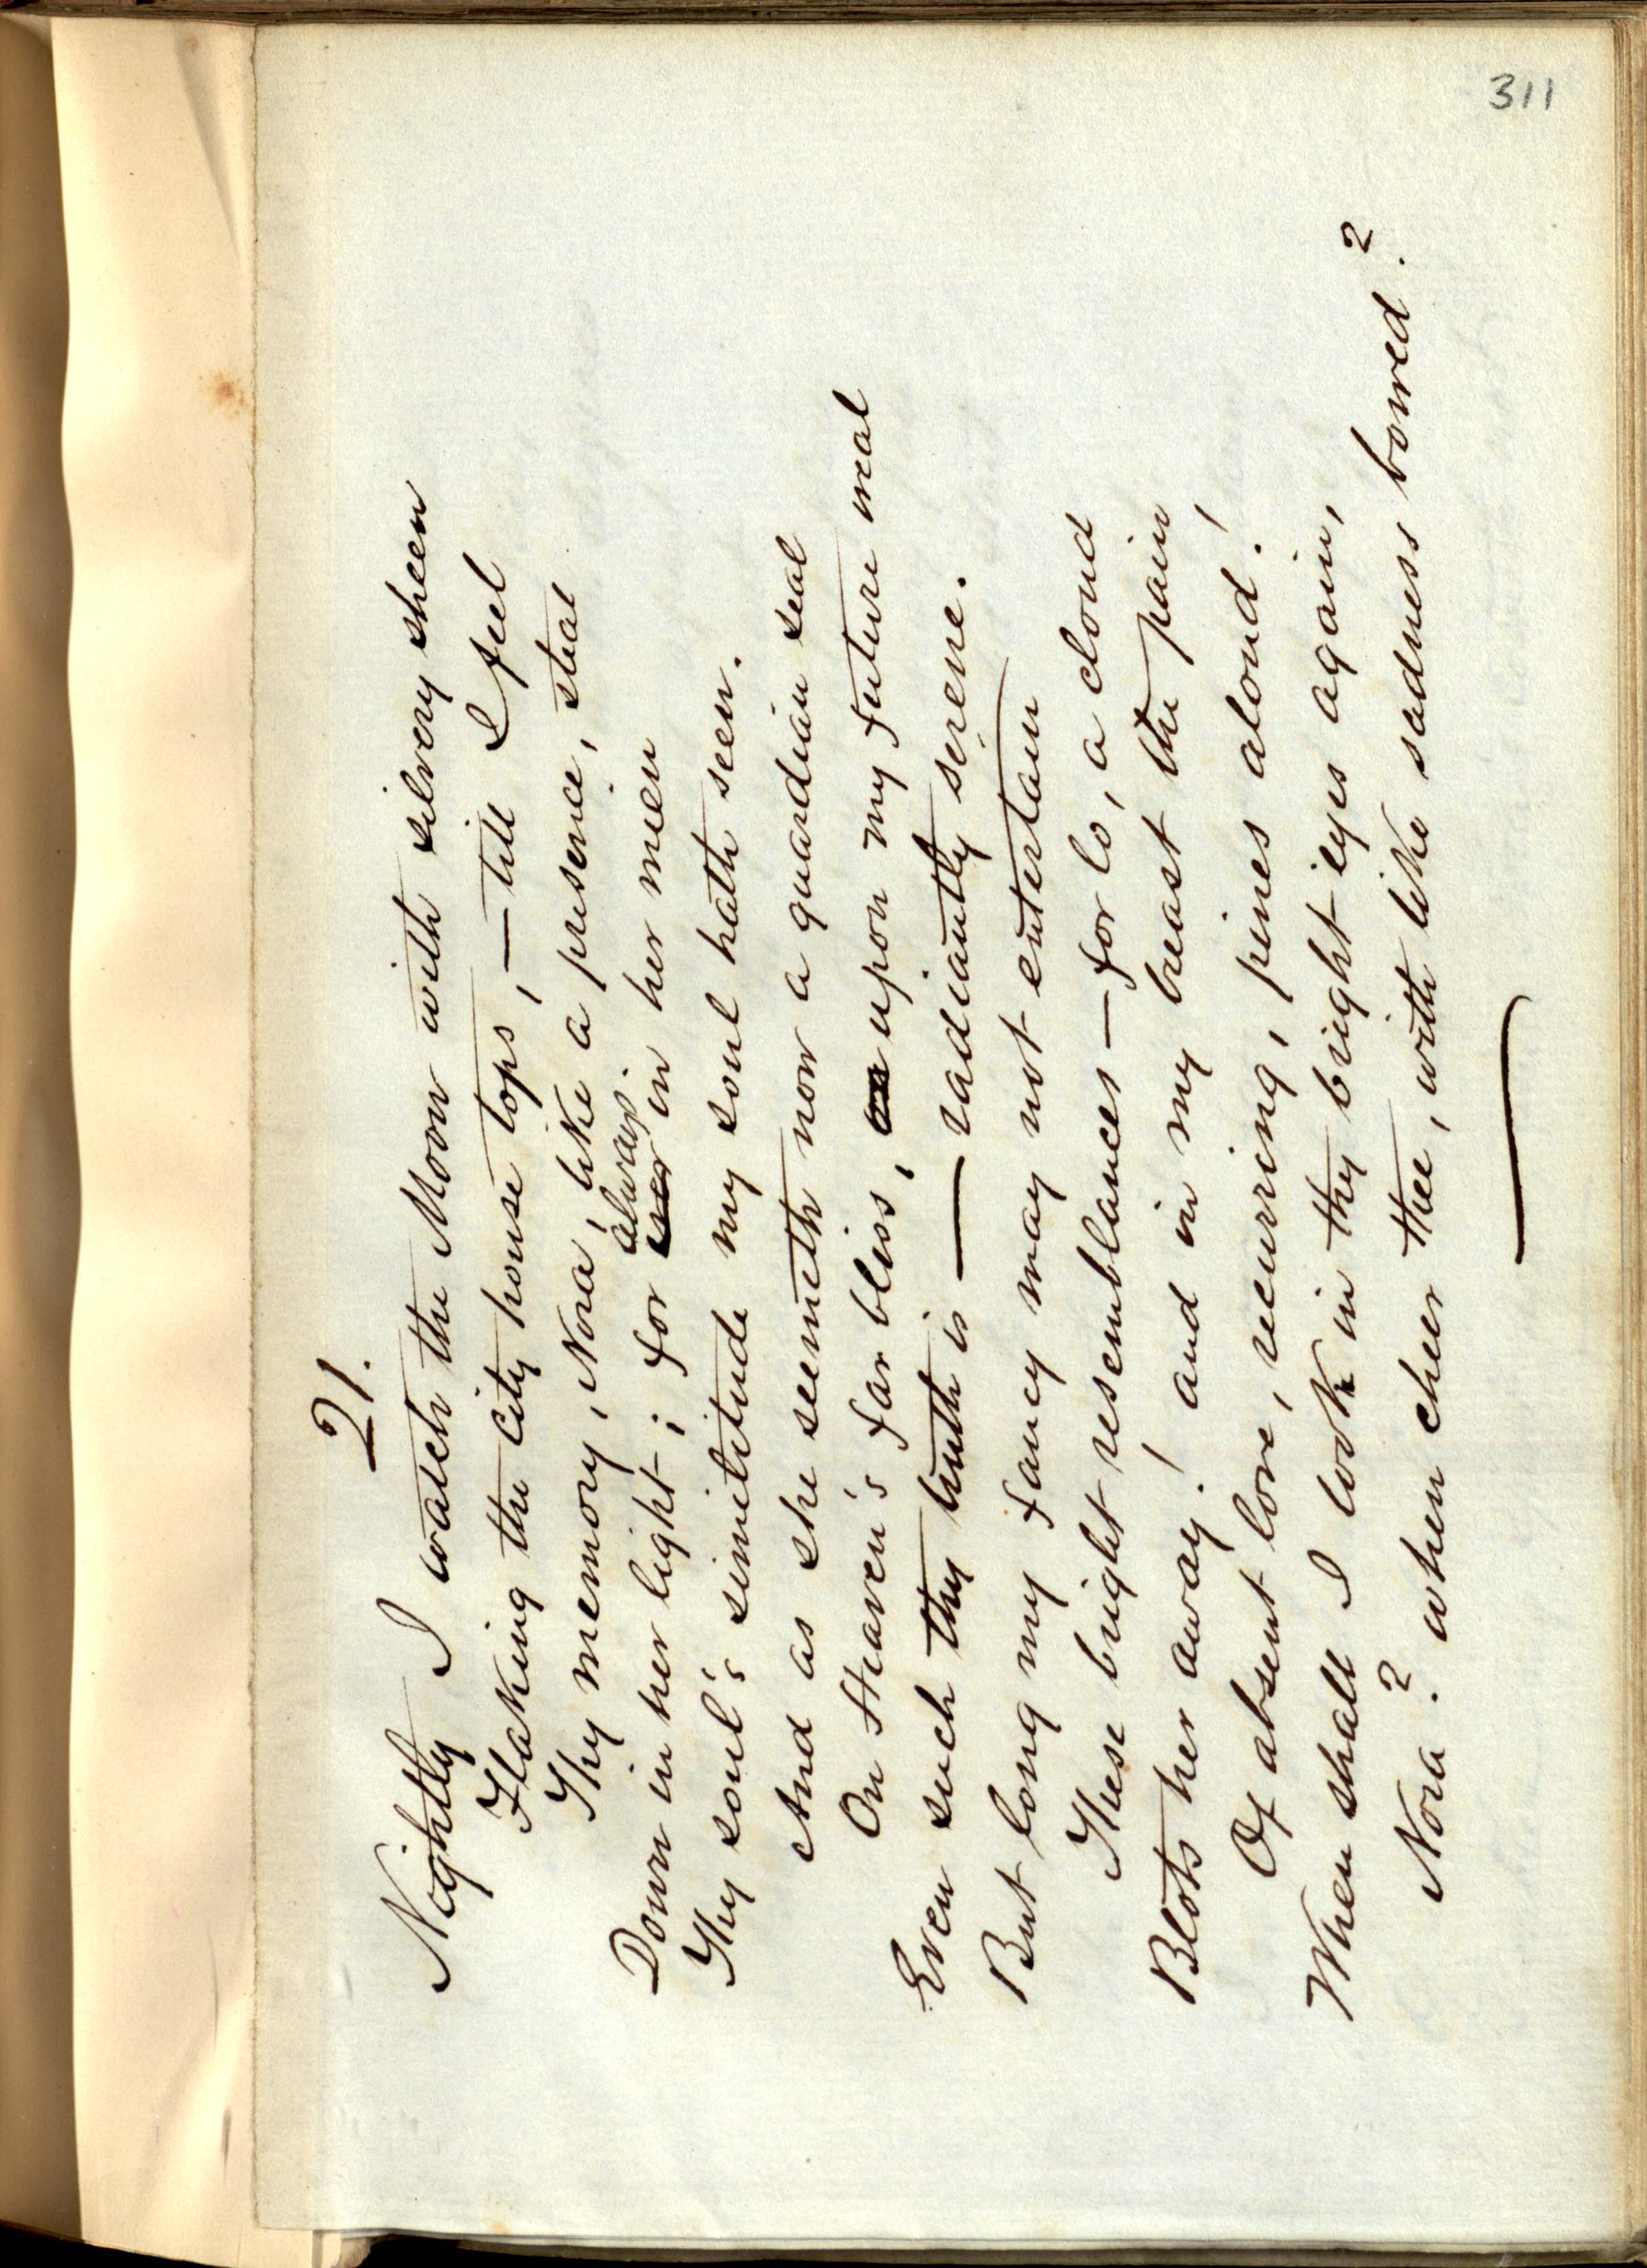 311
21.
Nightly I watch the Moon with silvery sheen
Flaking the city house tops, — till I feel
Thy memory, Nora, like a presence, steal
always
Down in her light; for ever in her mien
Thy soul's similitude my soul hath seen.
And as she seemeth now a guardian seal
On Heaven's far bliss, on upon my future weal
Even such thy truth is — radiantly serene.
But long my fancy may not entertain
These bright resemblances — for lo, a cloud
Blots her away! and in my breast the pain
Of absent love, recurring, pines aloud!
When shall I look in thy bright eyes again,
Nora? when cheer thee, with like sadness bowed?